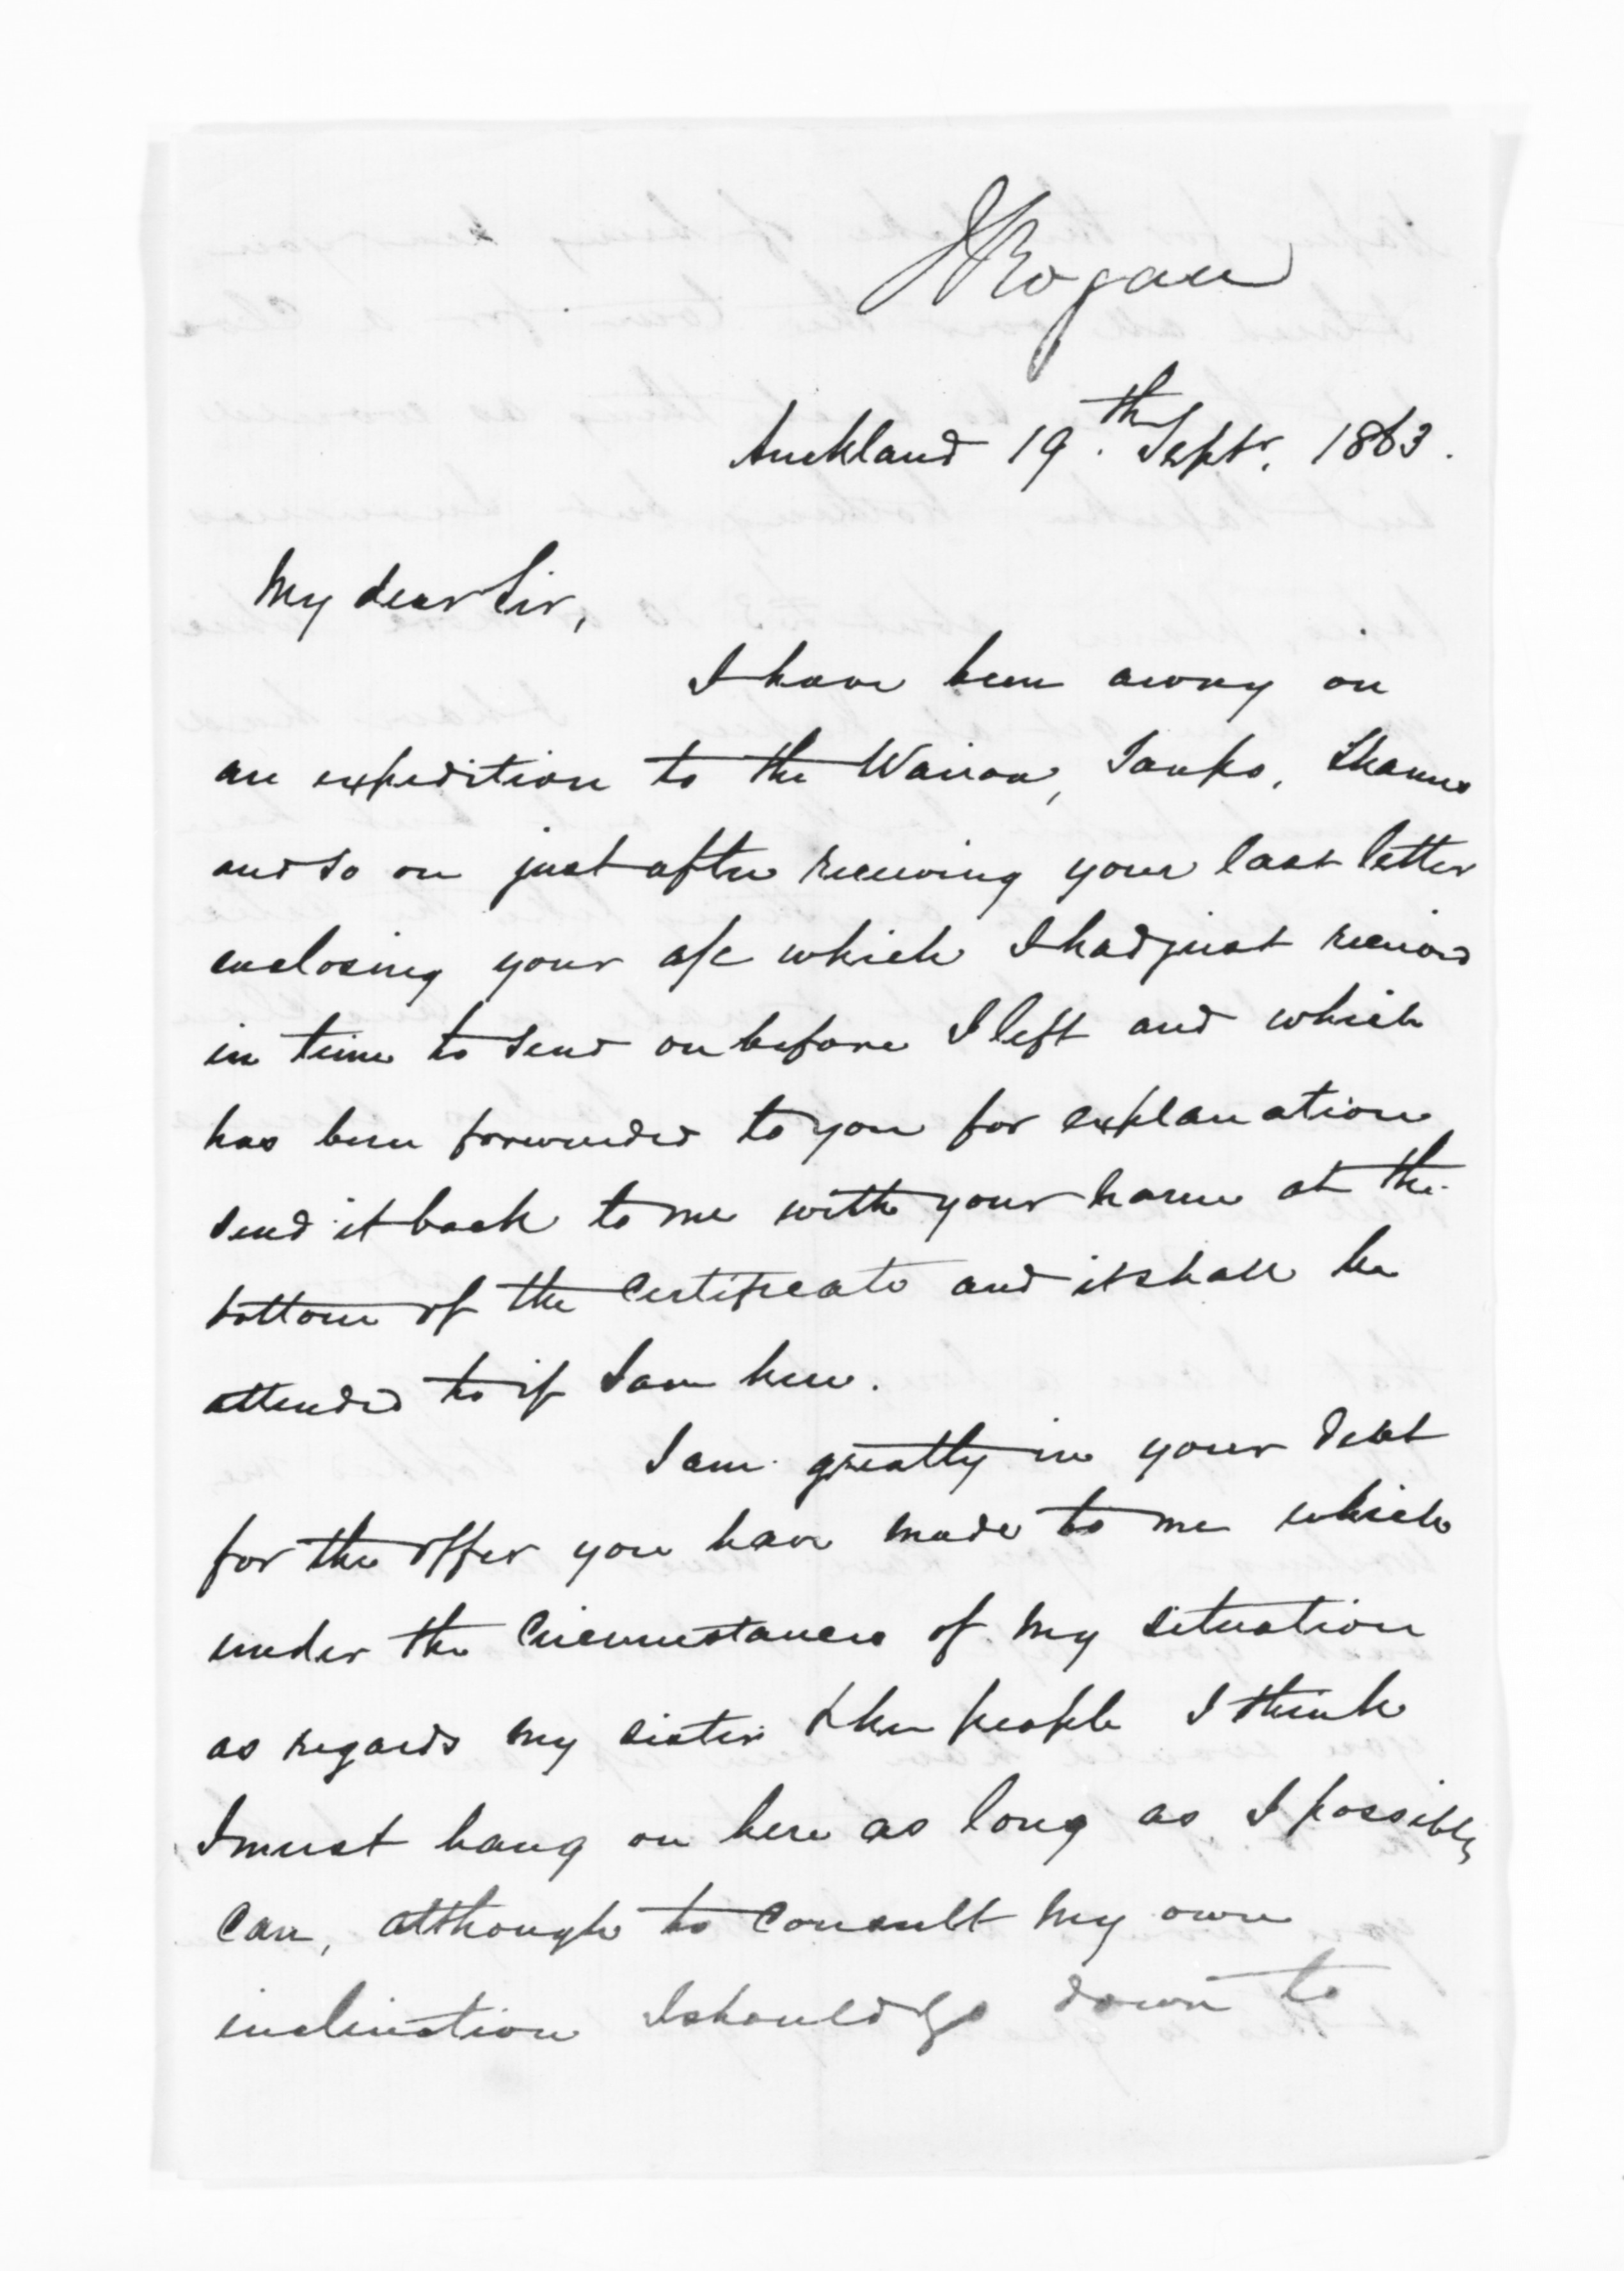 J Rogan
Auckland 19th. Septr. 1863.
My dear Sir,
I have been away on
an expedition to the Wairoa, Taupo, Thames
and so on just after receiving your last letter
enclosing your a/c which I had just received
in time to send on before I left and which
has been forwarded to you for explanation
send it back to me with your name at the
bottom of the Certificate and it shall be
attended to if I am here.
I am greatly in your debt
for the offer you have made to me which
under the Circumstances of my situation
as regards my sister & her people I think
I must hang on here as long as I possibly
Can, although to Consult my own
inclination I should go down to